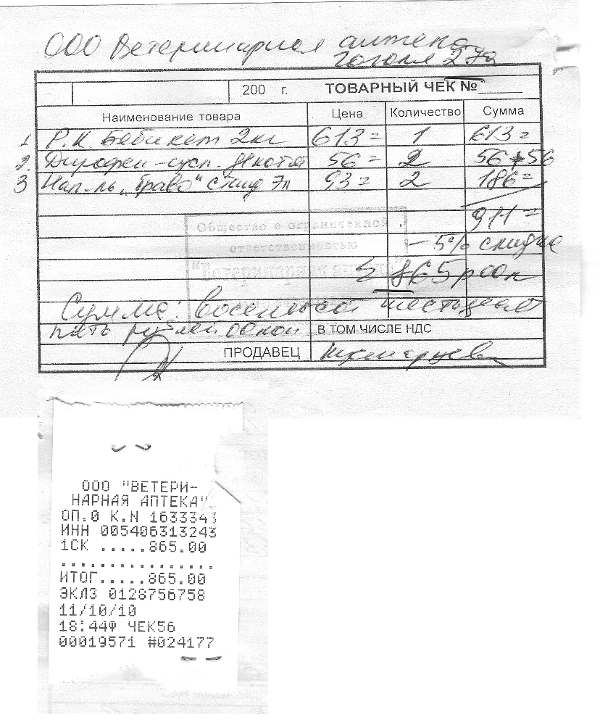 ООО Ветеринарная аптека
Гоголя 27а
200 г. ТОВАРНЫЙ ЧЕК №
Наименование товара Цена Количество Сумма
1 Р.К Бэбикет 2кг 613= 1 613=
2. Дирофен-сусп. 56= 2 56+56
3 Нап-ль „Браво" 93= 2 186=
911=
Общество с ограниченной
ответственностью
- 5% скидка
865 р 00 к
Сумма: восемьсот шестьдесят
пять рублей 00 коп В ТОМ ЧИСЛЕ НДС
ПРОДАВЕЦ
ООО "ВЕТЕРИ-
НАРНАЯ АПТЕКА"
ОП.0 К.N 1633343
ИНН 005406313243
1СК .....865.00
................
ИТОГ.....865.00
ЭКЛЗ 0128756758
11/10/10
18:44Ф ЧЕК56
00019571 #024177